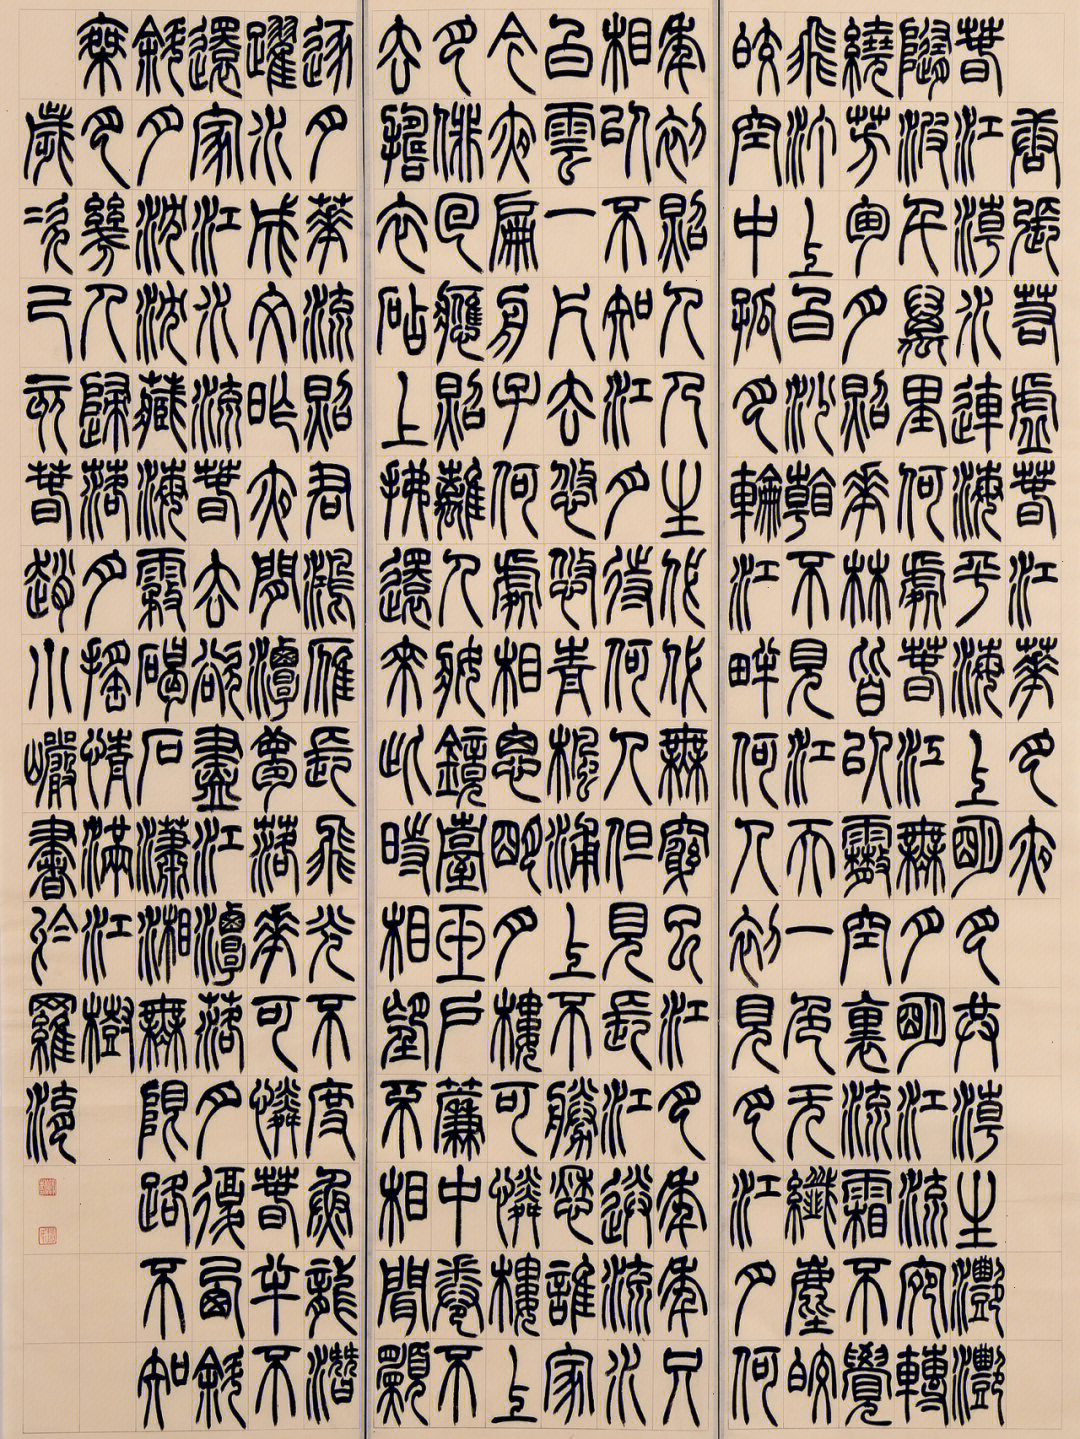 唐張若虛春江華月夜
春江潮水連海平海上明月共潮生灩灩
隨波千萬里何處春江無月明江流宛轉
繞芳甸月照花林皆似霰空裏流霜不覺
飛汀上白沙看不見江天一色无纖塵皎
皎空中孤月輪江畔何人初見月江月何
年初照人人生代代無窮已江月年年只
相似不知江月待何人但見長江送流水
白雲一片去悠悠青楓浦上不勝愁誰家
今夜扁舟子何處相思明月樓可憐樓上
月俳回應照離人妝鏡臺玉戶簾中卷不
去擣衣砧上拂還來此時相望不相聞願
逐月華流照君鴻雁長飛光不度魚龍潛
躍水成文昨夜閒潭夢落花可憐春半不
還家江水流春去欲盡江潭落月復西斜
斜月沈沈藏海霧碣石瀟湘無限路不知
乘月幾人歸落月搖情滿江樹
歲次己亥春趙小巖書於羅